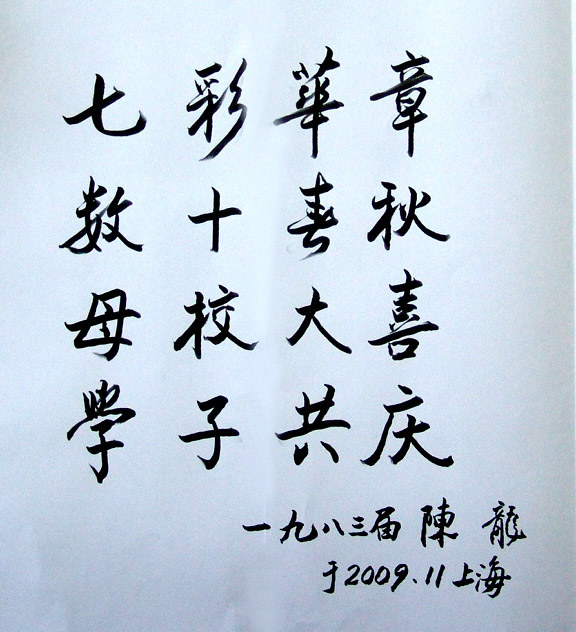 七彩華章
数十春秋
母校大喜
學子共庆
一九八三届 陳 龍
于2009.11上海